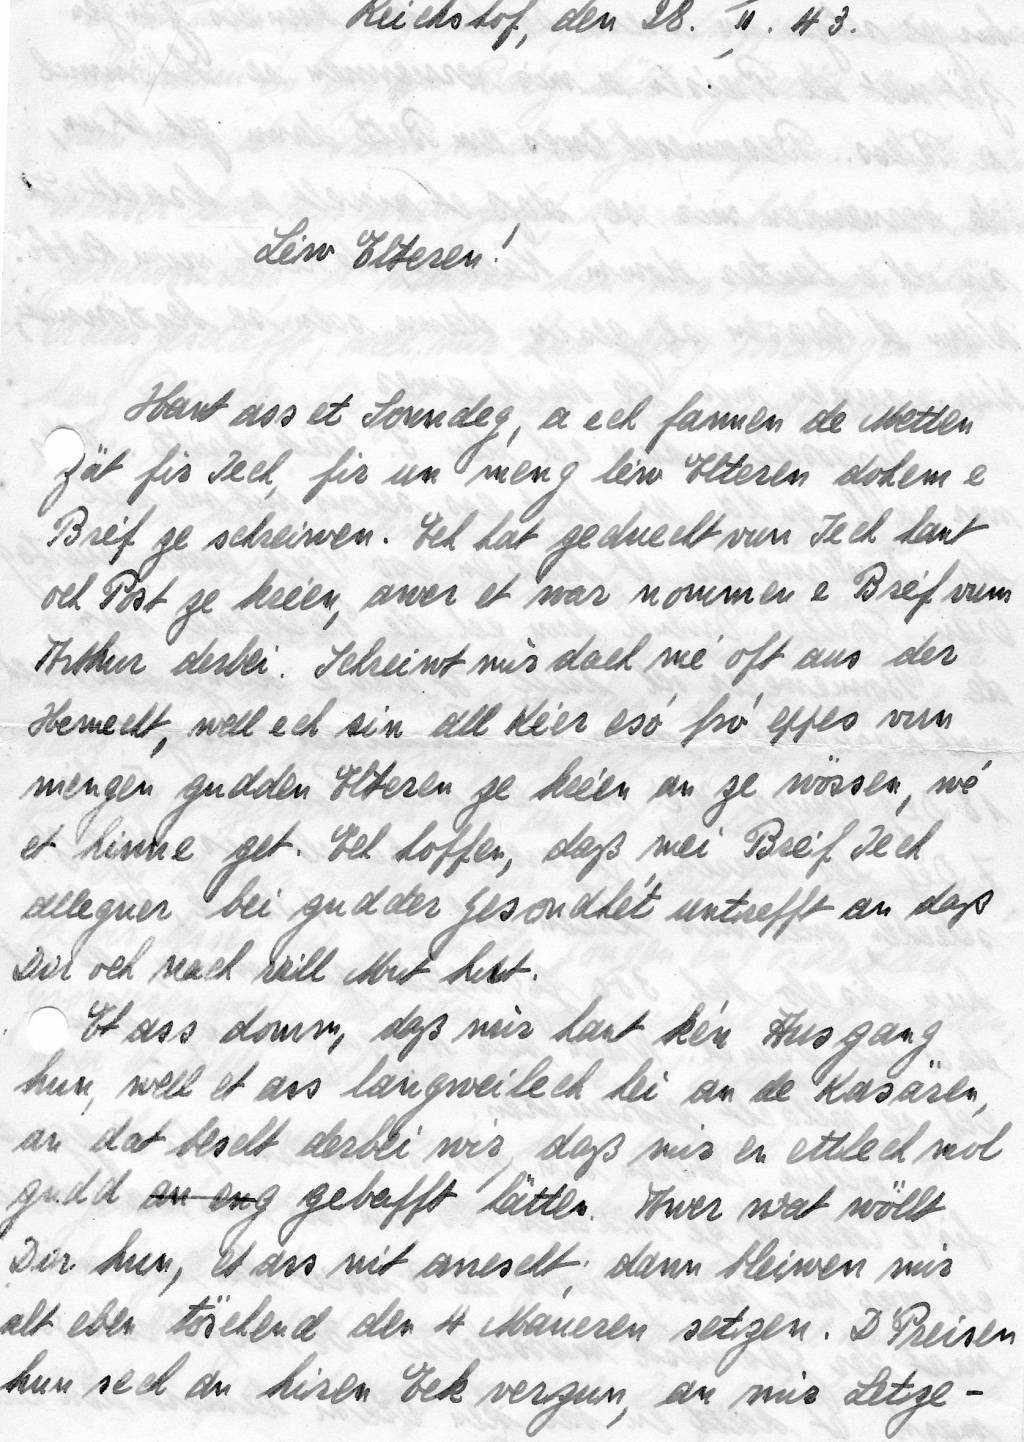 Reichshof, den 28. II. 43.
Léiw Elteren!
Haut ass et Sonndeg, a ech fannen de Metten
Zät fir Iech, fir un meng léiw Elteren dohem e
Bréif ze schreiwen. Ech hat geduecht vun Iech haut
och Post ze kréien, awer et war nommen e Bréif vum
Arthur derbei. Schreiwt mir dach méi oft aus der
Hemecht, well ech sin all Kéier esó fró eppes vun
mengen gudden Elteren ze kréien an ze wössen, wé
et hinne get. Ech hoffen, daß méi Bréif Iech
alleguer bei gudder Gesondhét untrefft an daß
Dir och nach vill Mut hut.
Et ass domm, daß mir haut kén Ausgang
hun, well et ass langweilech hei an de Kasären,
an dat bescht derbei wir, daß mir en ettlech mol
gudd an eng gebafft hätten. Awer wat wöllt
Dir hun, et ass nit anescht, dann bleiwen mir
alt eben töschend den 4 Maueren setzen. D'Preisen
hun sech an hiren Eck verzun, an mir Letze-